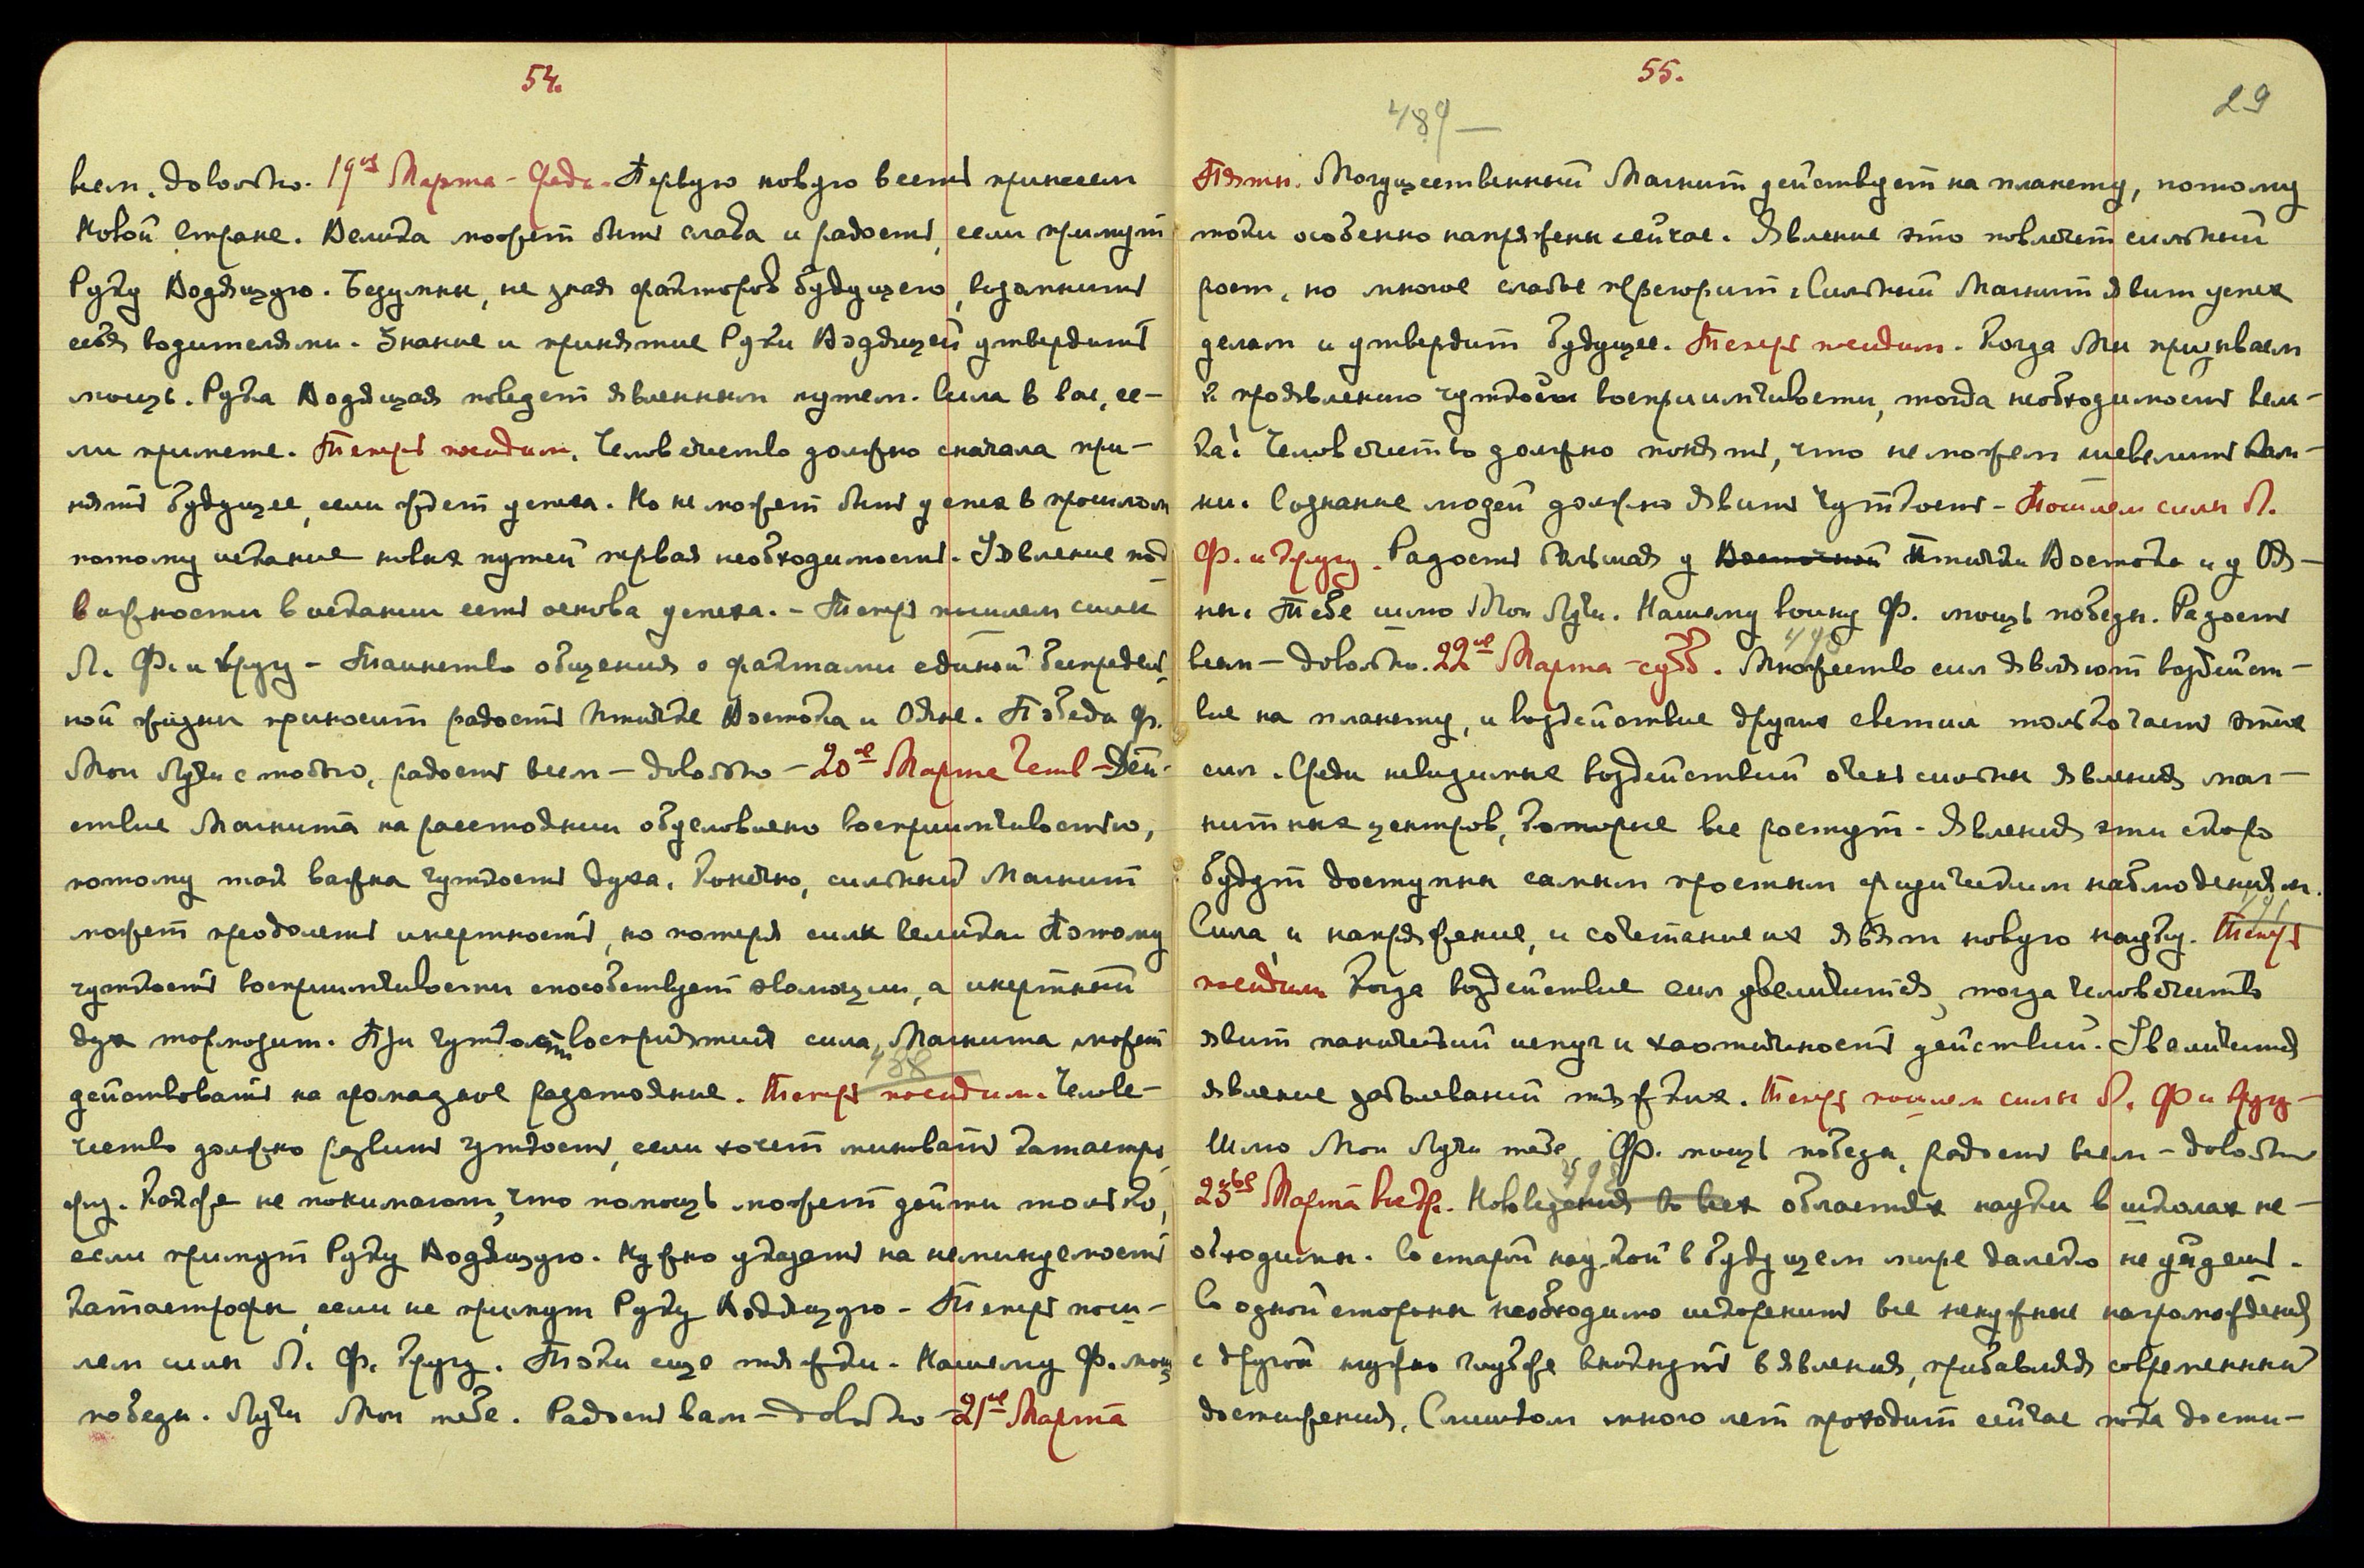 54.
всем. довольно. 19ое Марта – Среда. Первую новую весть принесем
Новой Стране. Велика может быть слава и радость, если примут
Руку Водящую. Безумны, не зная факторов будущего, возомнить
себя водителями. Знание и принятие Руки Водящей утвердить
мощь. Рука Водящая поведет явленным путем. Сила в вас, ес-
ли примете. Теперь посидим. Человечество должно сначала при-
нять будущее, если ждет успеха. Но не может быть успех в прошлом
потому искание новых путей первая необходимость. Уявление под
важности в искании есть основа успеха. – Теперь пошлем силы
Л. Ф. и другу – Таинство общения с фактами единой беспредель
ной жизни приносит радость Птичке Востока и Ояне. Победа Ф.
Мои Лучи с тобою, радость всем – довольно – 20ое Марта Четв – Дей-
ствие Магнита на расстоянии обусловлено восприимчивостью,
потому так важна чуткость духа. Конечно, сильный Магнит
может преодолеть инертность, но потеря силы велика. Потому
чуткость восприимчивости способствует эволюции, а инертный
дух тормозит. При чуткости восприятия сила Магнита может
488
действовать на громадное расстояние. Теперь посидим. Челове-
чество должно развить чуткость, если хочет миновать катастро
фу. Как же не понимают, что помощь может дойти только,
если примут Руку Водящую. Нужно указать на неминуемость
катастрофы, если не примут Руку Водящую – Теперь пош-
лем силы Л. Ф. другу. Токи еще тяжки. Нашему Ф. мощь
победы. Лучи Мои тебе. Радость вам – довольно – 21ое Марта
55.
29
489 –
Пятн. Могущественный Магнит действует на планету, потому
токи особенно напряжены сейчас. Явление это повлечет сильный
рост, но многое слабое перегорит. Сильный Магнит явит успех
делам и утвердит будущее. Теперь посидим. Когда Мы призываем
к проявлению чуткой восприимчивости, тогда необходимость вели-
ка! Человечество должно понять, что не можем шевелить кам-
ни. Сознание людей должно явить чуткость – Пошлем силы Л.
Ф. и другу. Радость большая у Восточной Птички Востока и у Оя-
ны. Тебе шлю Мои Лучи. Нашему воину Ф. мощь победы. Радость
490
всем – довольно. 22ое Марта – субб. Множество сил являют воздейст-
вие на планету, и воздействие других светил только часть этих
сил. Среди невидимых воздействий очень сильны явления маг-
нитных центров, которые все растут. Явления эти скоро
будут доступны самым простым физическим наблюдениям.
491
Сила, и напряжение, и сочетание их явят новую науку. Теперь
посидим Когда воздействие сил увеличится, тогда человечество
явит панический испуг и хаотичность действий. Увеличится
явление заболеваний тяжких. Теперь пошлем силы Л. Ф и другу –
Шлю Мои Лучи тебе, Ф. мощь победы, радость всем – довольно
492
23ье Марта Воскр. Нововведения во всех областях науки в школах не-
обходимы. Со старой наукой в будущем мире далеко не уйдешь.
Со одной стороны необходимо искоренить все ненужные нагромождения
с другой нужно глубже вникнуть в явления, прибавляя современный
достижения. Слишком много лет проходит сейчас пока дости-